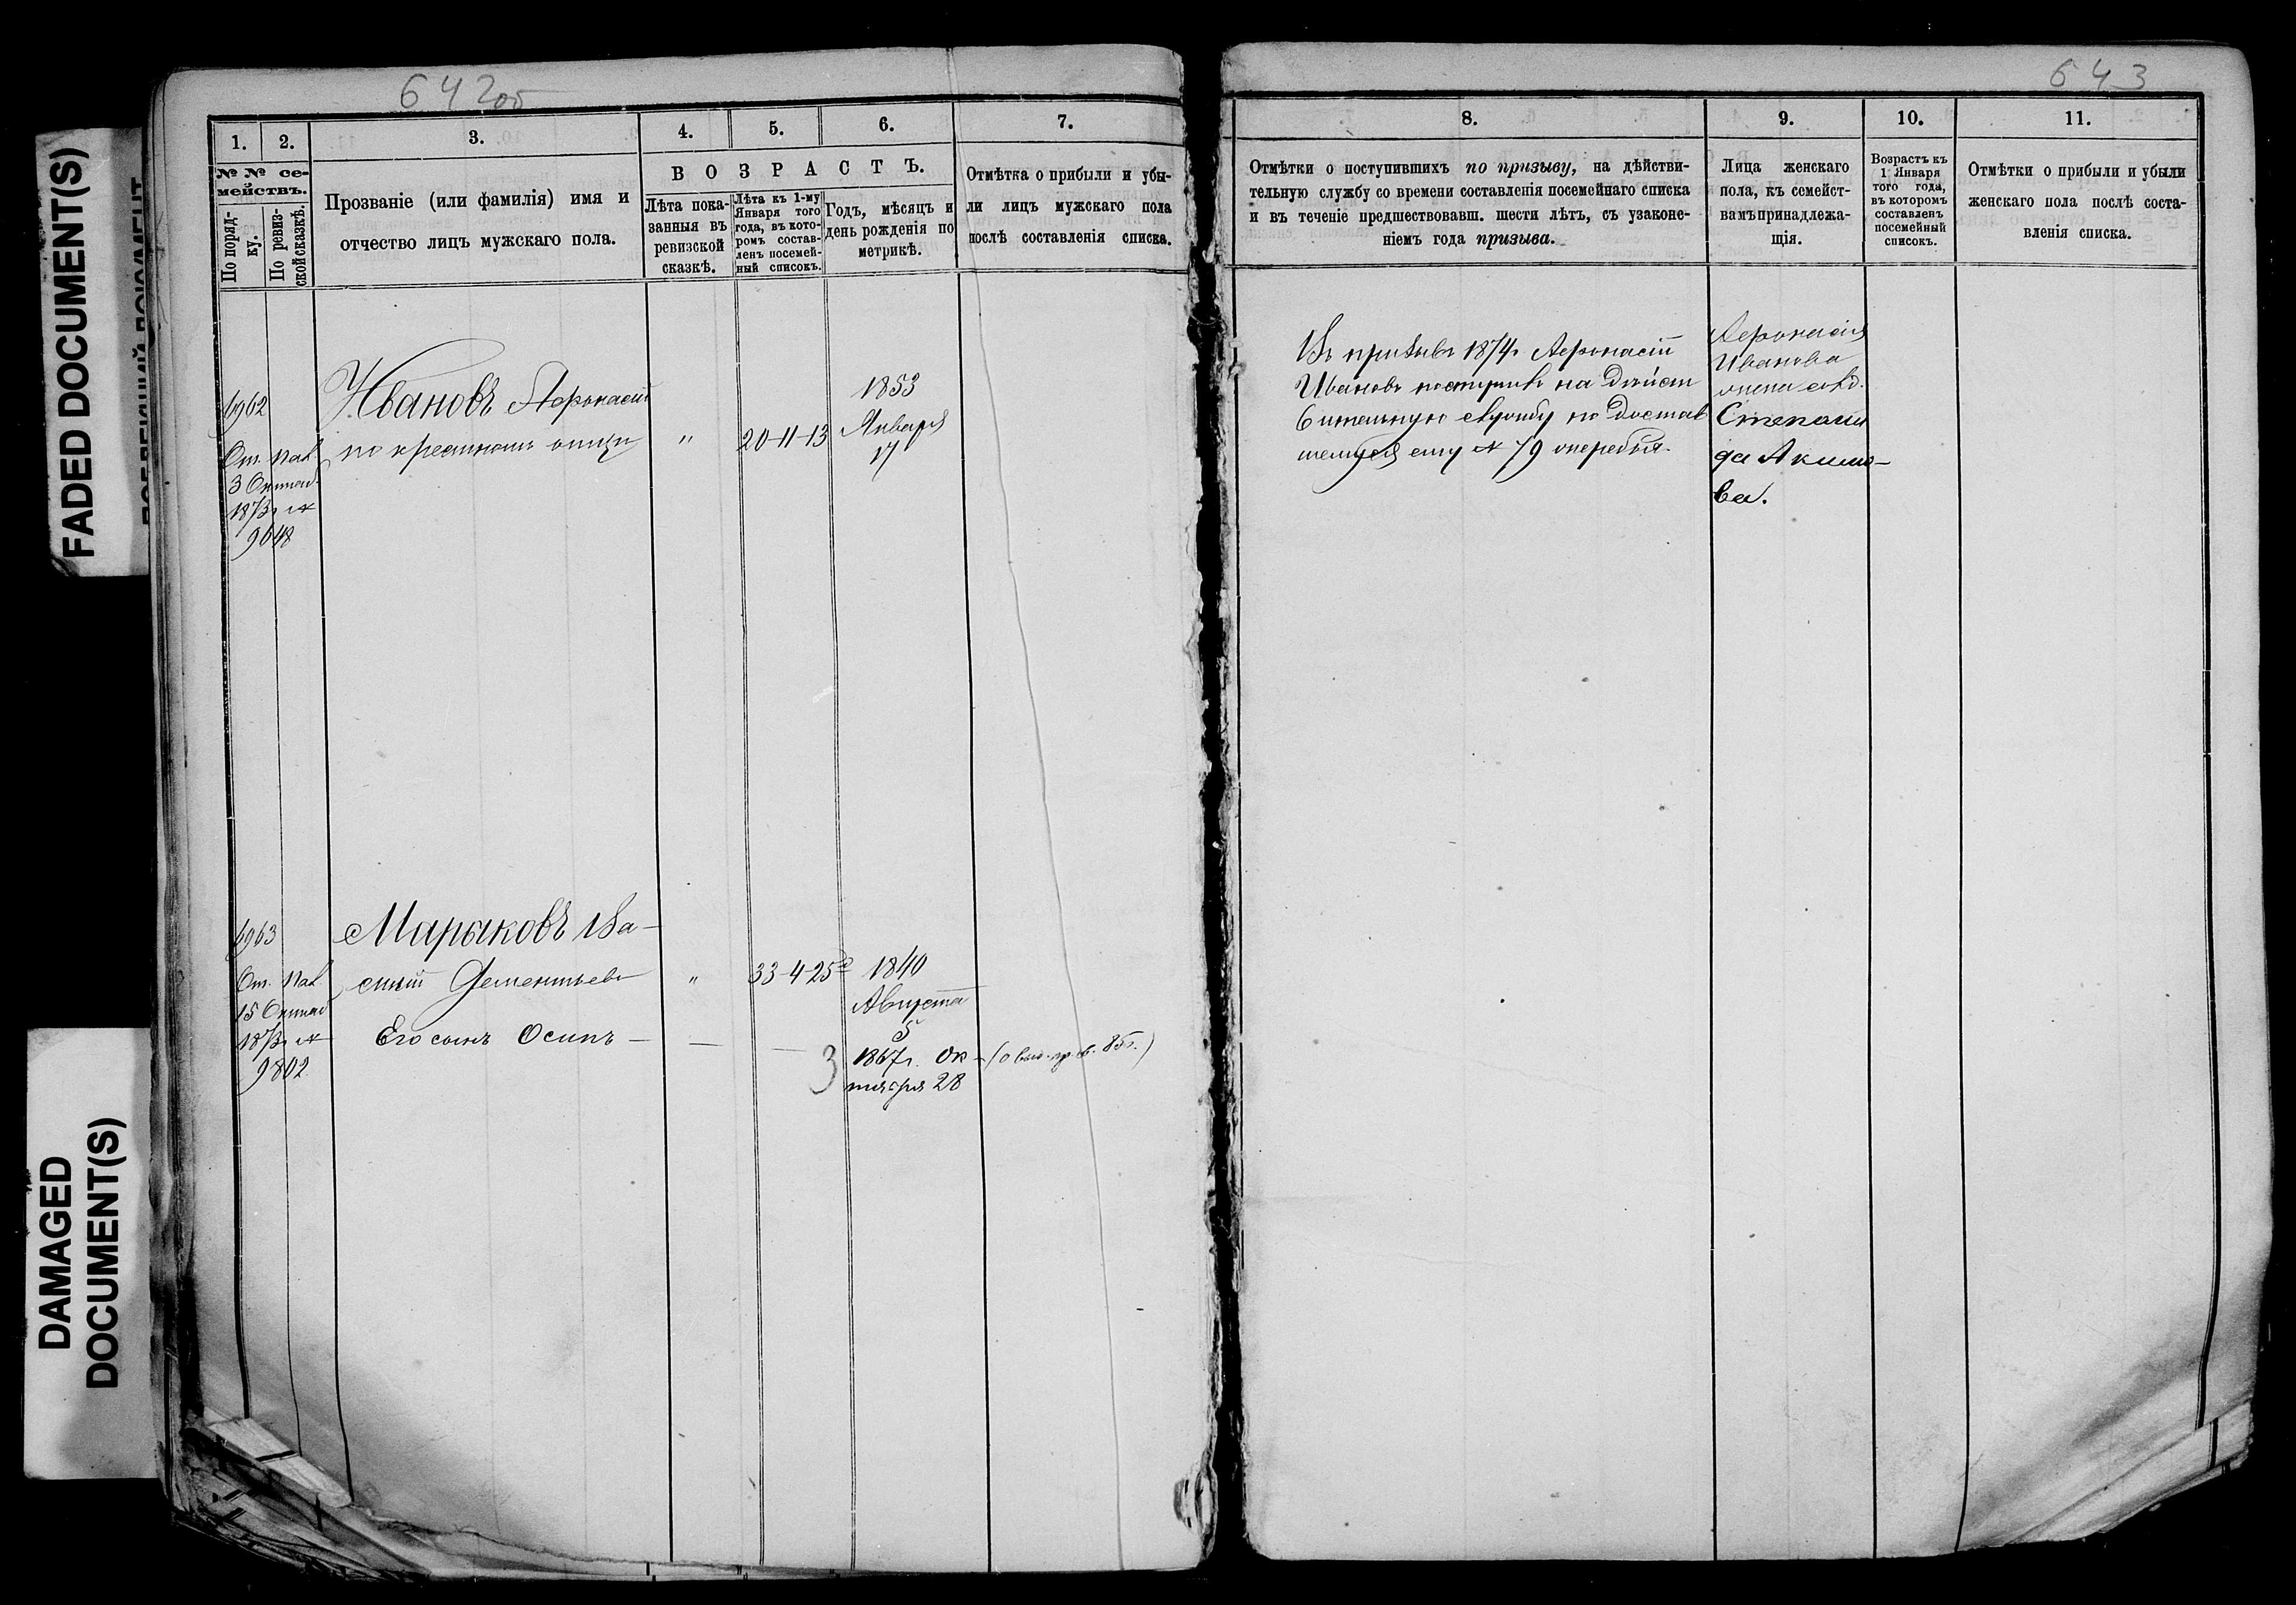 FADED DOCUMENT(S)
DAMAGED
DOCUMENT(S)
642об
1.
2.
3.
4.
5.
6.
7.
№ № се-
мействъ.
По поряд-
ку.
По ревиз-
ской сказкѣ.
Прозваніе (или фамилія) имя и
отчество лицъ мужскаго пола.
ВОЗРАСТЪ.
Лѣта пока-
занныя въ
ревизской
сказкѣ.
Лѣта къ 1-му
Января того
года, въ кото-
ромъ состав-
ленъ посемей-
ный списокъ.
Годъ, мѣсяцъ и
день рожденія по
метрикѣ.
Отмѣтка о прибыли и убы-
ли лицъ мужскаго пола
послѣ составленія списка.
6962
От. Пал
3 Октяб.
1873г №
9648
Ивановъ Афонасій
по крестномъ отцѣ
"
20-11-13
1853
Января
17
6963
От. Пал
15 Октяб
1873г №
9802
Марковъ Ва-
силій Дементьевъ
"
33-4-25
1840
Августа
5
Его сынъ Осипъ —
3
1867г. Ок-
тября 28
643
8.
9.
10.
11.
Отмѣтки о поступившихъ по призыву, на дѣйстви-
тельную службу со времени составленія посемейнаго списка
и въ теченіе предшествовавш. шести лѣтъ, съ узаконе-
ніемъ года призыва.
Лица женскаго
пола, къ семейст-
вамъ принадлежа-
щія.
Возрастъ къ
1 Января
того года,
въ которомъ
составленъ
посемейный
списокъ.
Отмѣтки о прибыли и убыли
женскаго пола послѣ соста-
вленія списка.
Въ призывъ 1874г Афонасій
Ивановъ поступилъ на Дѣйст
вительную службу по Достав
шемуся ему № 79 жеребья.
Афонасія
Иванова
Степани
да Акимо-
ва.